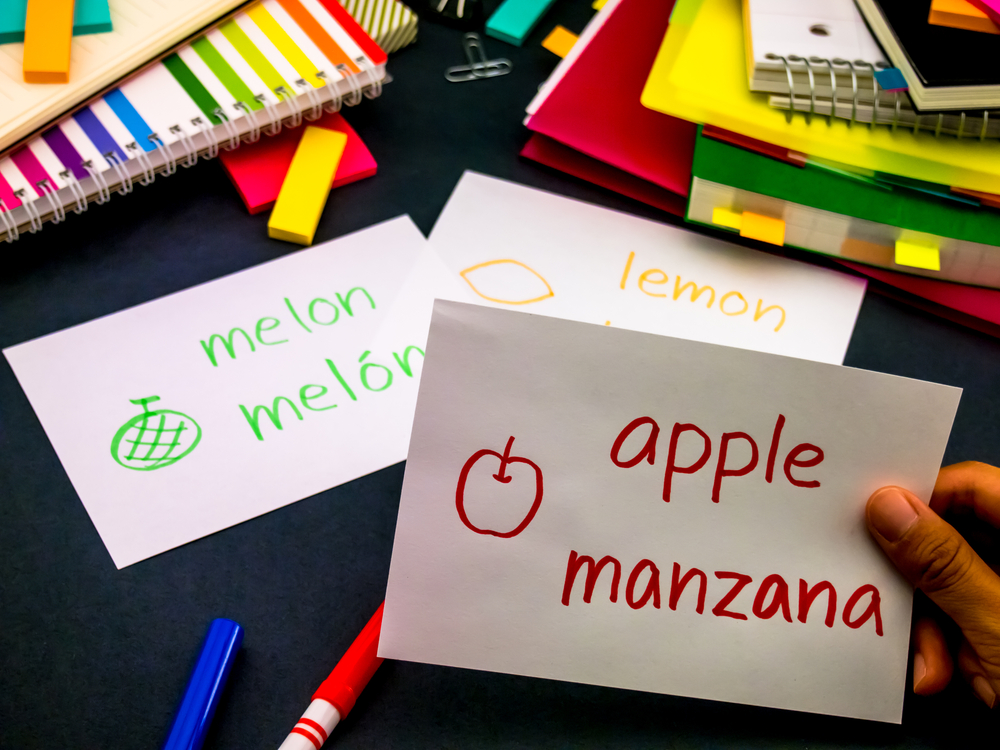 lemon
melon
melón
apple
manzana